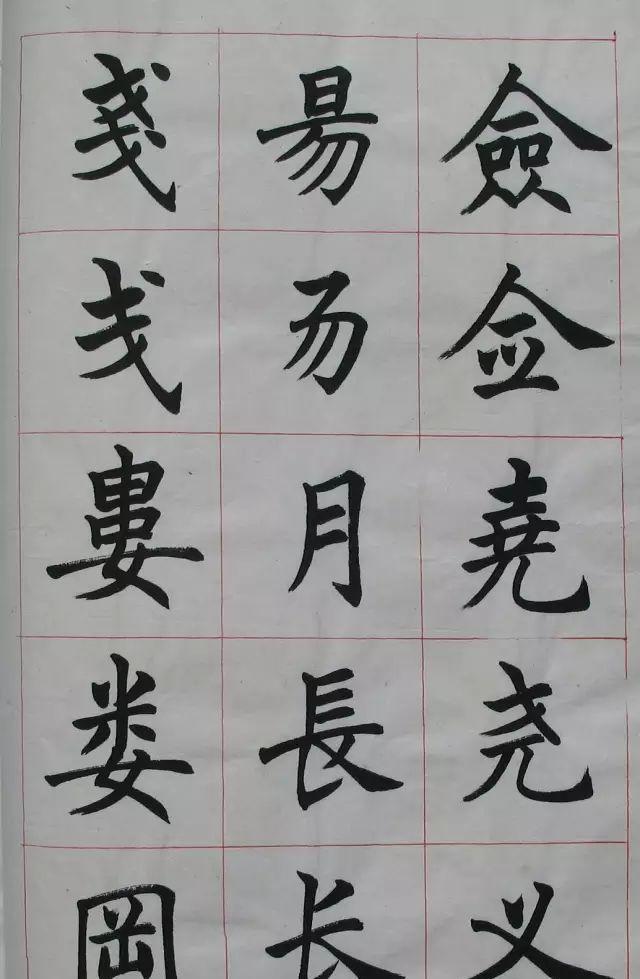 僉佥堯尧义
昜𠃓月長长
戔戋婁娄岡